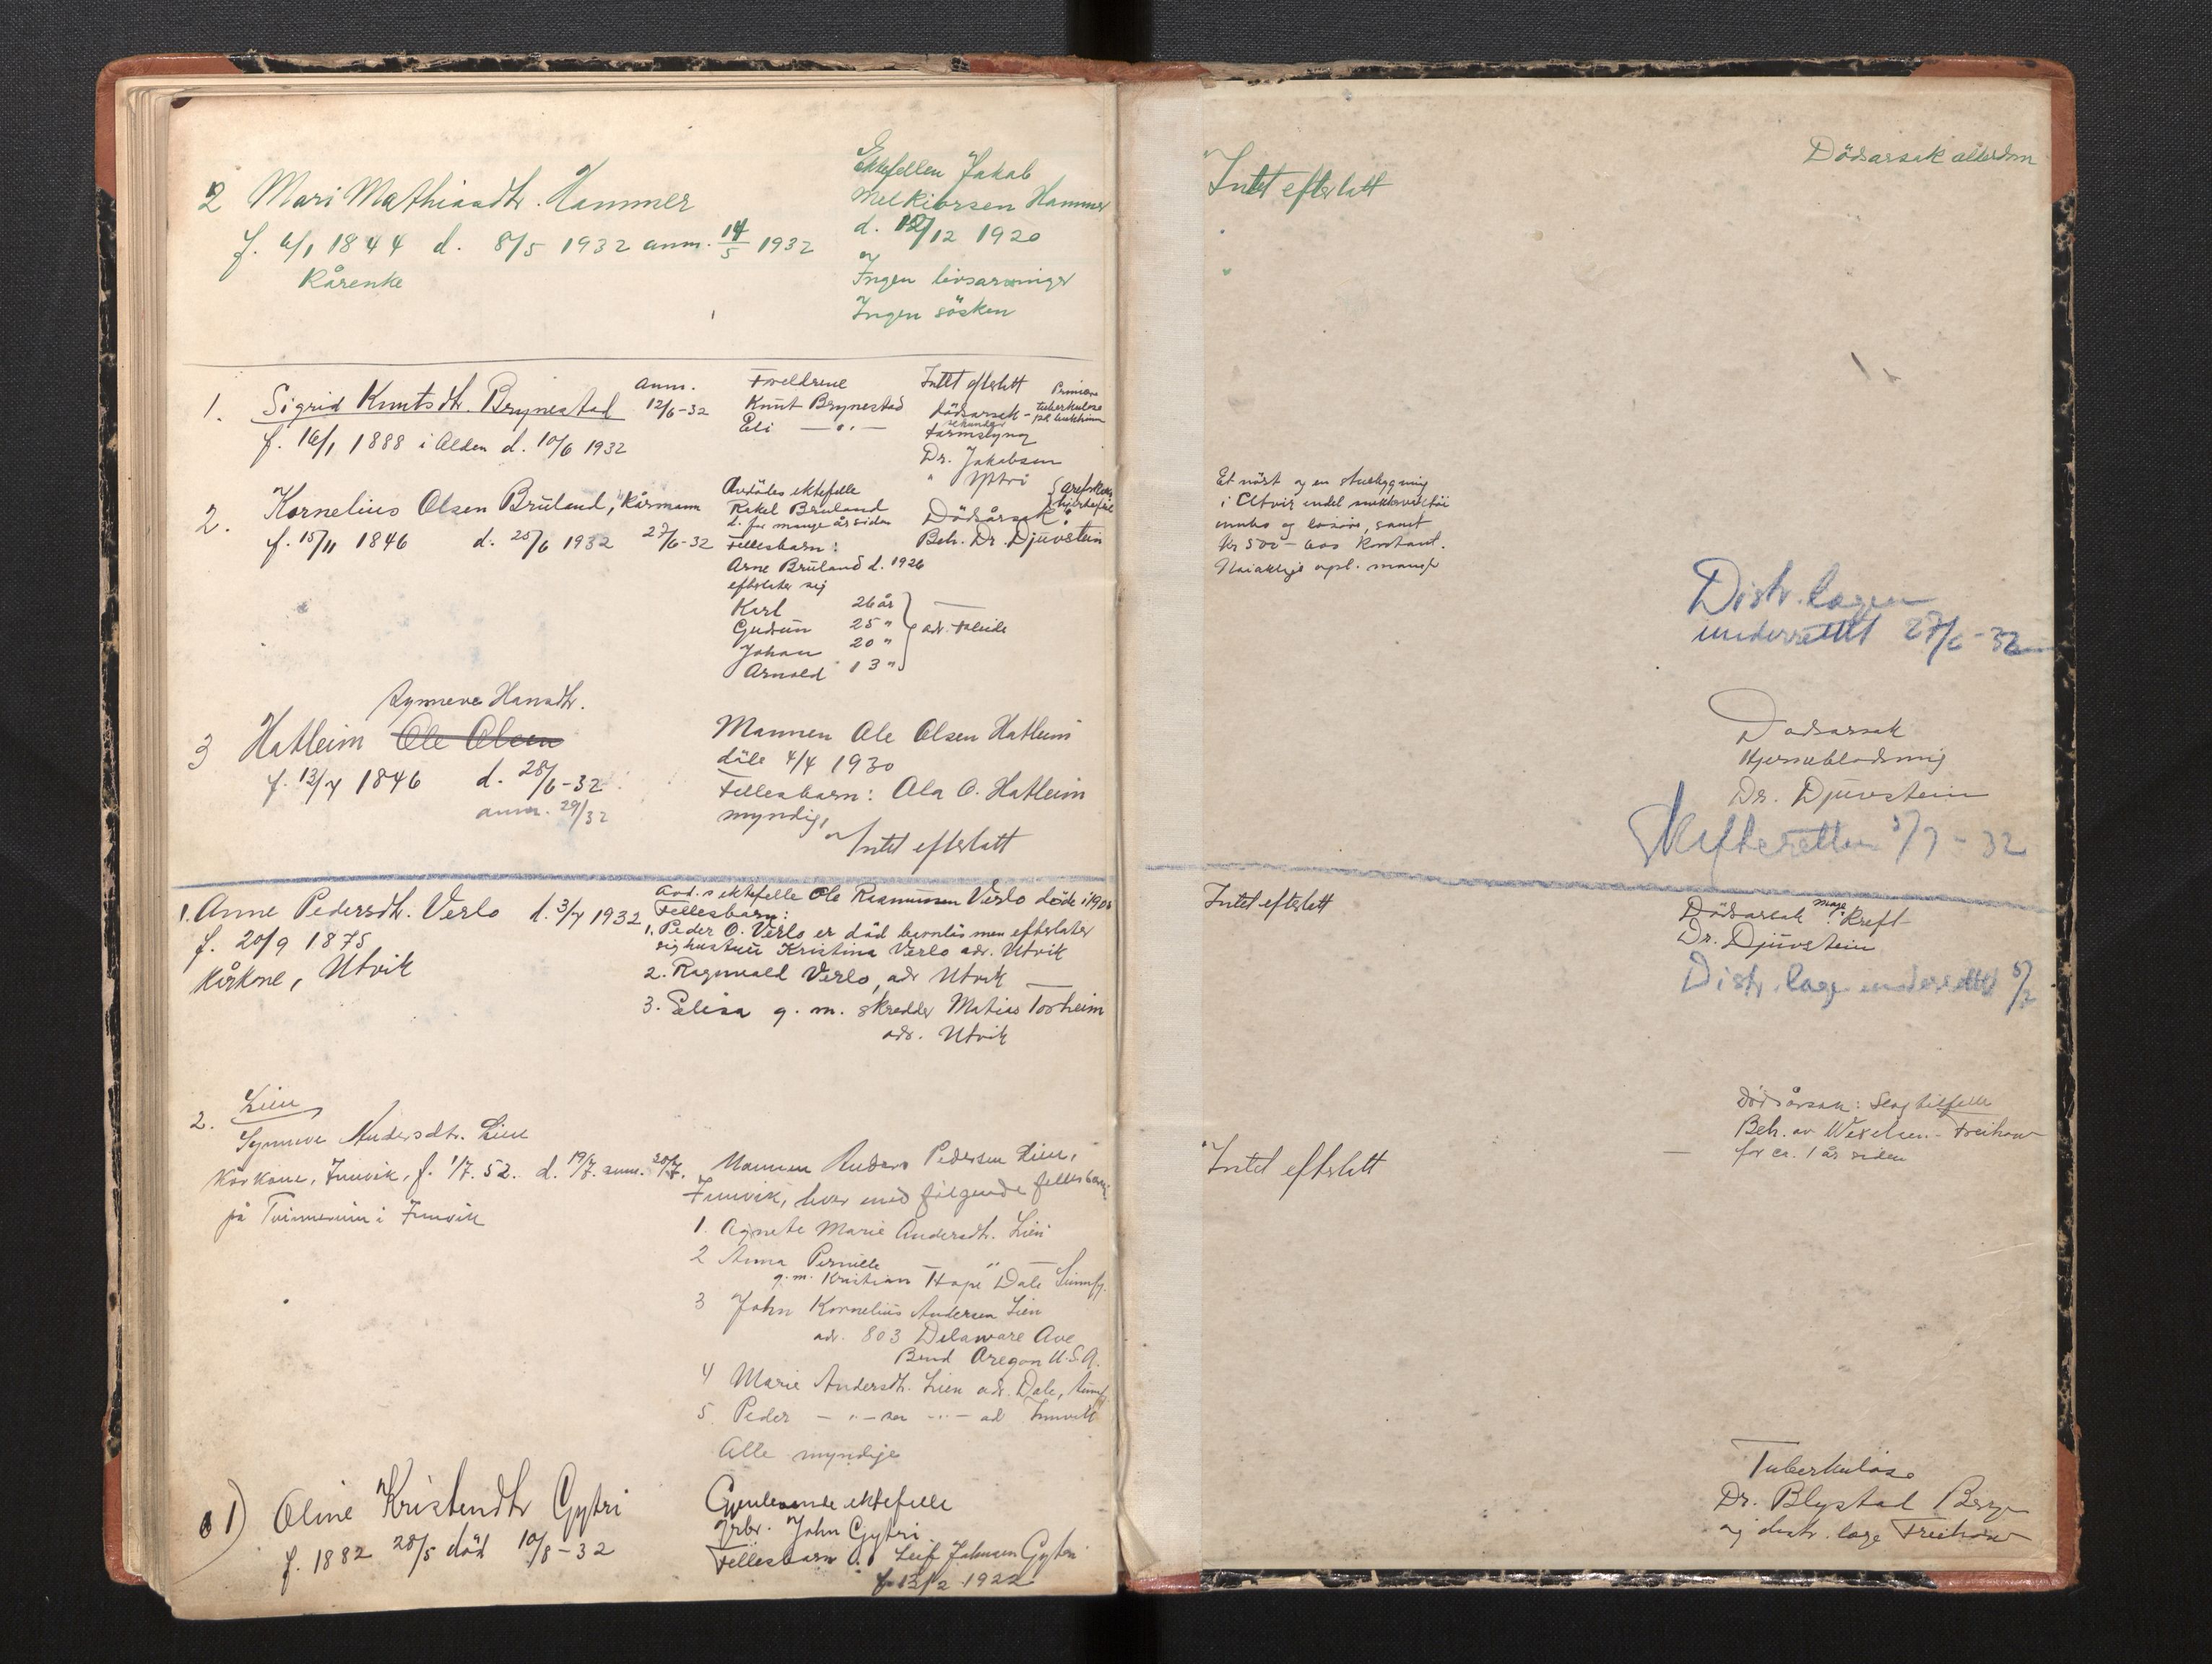 2 Mari Mathiasdtr. Hammer
f. 6/1 1844 d. 8/5 1932 anm. 14/5 1932
Kårenke
Ektefellen Jakob
Melkiorsen Hammer
d. 12/12 1920
Ingen livsarvinger
Ingen søsken
Intet efterlatt
Dødsarsak alderdom
1. Sigrid Knutsdtr. Brynestad
f. 16/1 1888 i Alden d. 10/6 1932
anm.
12/6-32
Foreldrene
Knut Brynestad
Eli — " —
Intet efterlatt
dødsarsak - Primær tuberkulose
sekundær
Dr. Jakobsen
2. Kornelius Olsen Bruland, Kårmann
f. 15/11 1846 d. 25/6 1932 27/6-32
Avdødes ektefelle
Rakel Bruland
d. for mange år siden
Fellesbarn:
Arne Bruland d. 1926
efterlater sig
Karl 26 år
Gudrun 25 "
Johan 20 "
Arnold 13 "
adr.
Dødsårsak:
Beh. Dr. Djuvstein
Et nøst og en stuebygning
i Utvik endel
innbo og løsøre, samt
kr 500 - hos
Distr. lægen
underrettet 27/6-32
Synneve Hansdtr.
3 Hatleim Ole Olsen
f. 12/7 1846 d. 28/6-32
anm. 29/32
Mannen Ole Olsen Hatleim
døde 4/4 1930
Fellesbarn: Ola O. Hatleim
myndig,
Intet efterlatt
Dødsarsak
Hjerneblødning
Dr. Djuvstein
Skifteretten 5/7-32
1. Anne Pedersdtr. Verlo d. 3/7 1932
f. 20/9 1875
Kårkone, Utvik
Avd.s ektefelle Ole Rasmussen Verlo døde i
Fellesbarn:
1. Peder O. Verlo er død barnløs men efterlater
sig hustru Kristina Verlo adr. Utvik
2. Ragnvald Verlo, adr Utvik
3. Elisa g. m. skredder Matias Torheim
adr. Utvik
Intet efterlatt
Dødsarsak: mage Kreft
Dr. Djuvstein
Distr. læge underrettet 5/7
2. Lien
Synneve Andersdtr. Lien
Kårkone, Innvik, f. 1/7. 52. d. 19/7. anm. 20/7.
på Tvinnereim i Innvik
Mannen Anders Pedersen Lien,
Innvik, lever med følgende fellesbarn:
1. Agnete Marie Andersdtr. Lien
2 Anna Pernille — " —
g. m. Kristian Hope Dale Sunnfj.
3 John Kornelius Andersen Lien
adr. 803 Delaware Ave
Bend Oregon U.S.A.
4 Marie Andersdtr. Lien adr. Dale, Sunnfj
5. Peder — " — sen — " — ad Innvik
Alle myndige
Intet efterlatt
Dødsårsak: Slagtilfelle
Beh. av Wexelsen - Freihow
for ca. 1 år siden
1) Oline Kristendtr Gytri
f. 1882 28/5 død 10/8-32
Gjenlevende ektefelle
grbr. John Gytri
Fellesbarn: Leif Johnsen Gytri
f. 13/2 1922
Tuberkulose
Dr. Blystad Bergen
og distr. læge Freihow